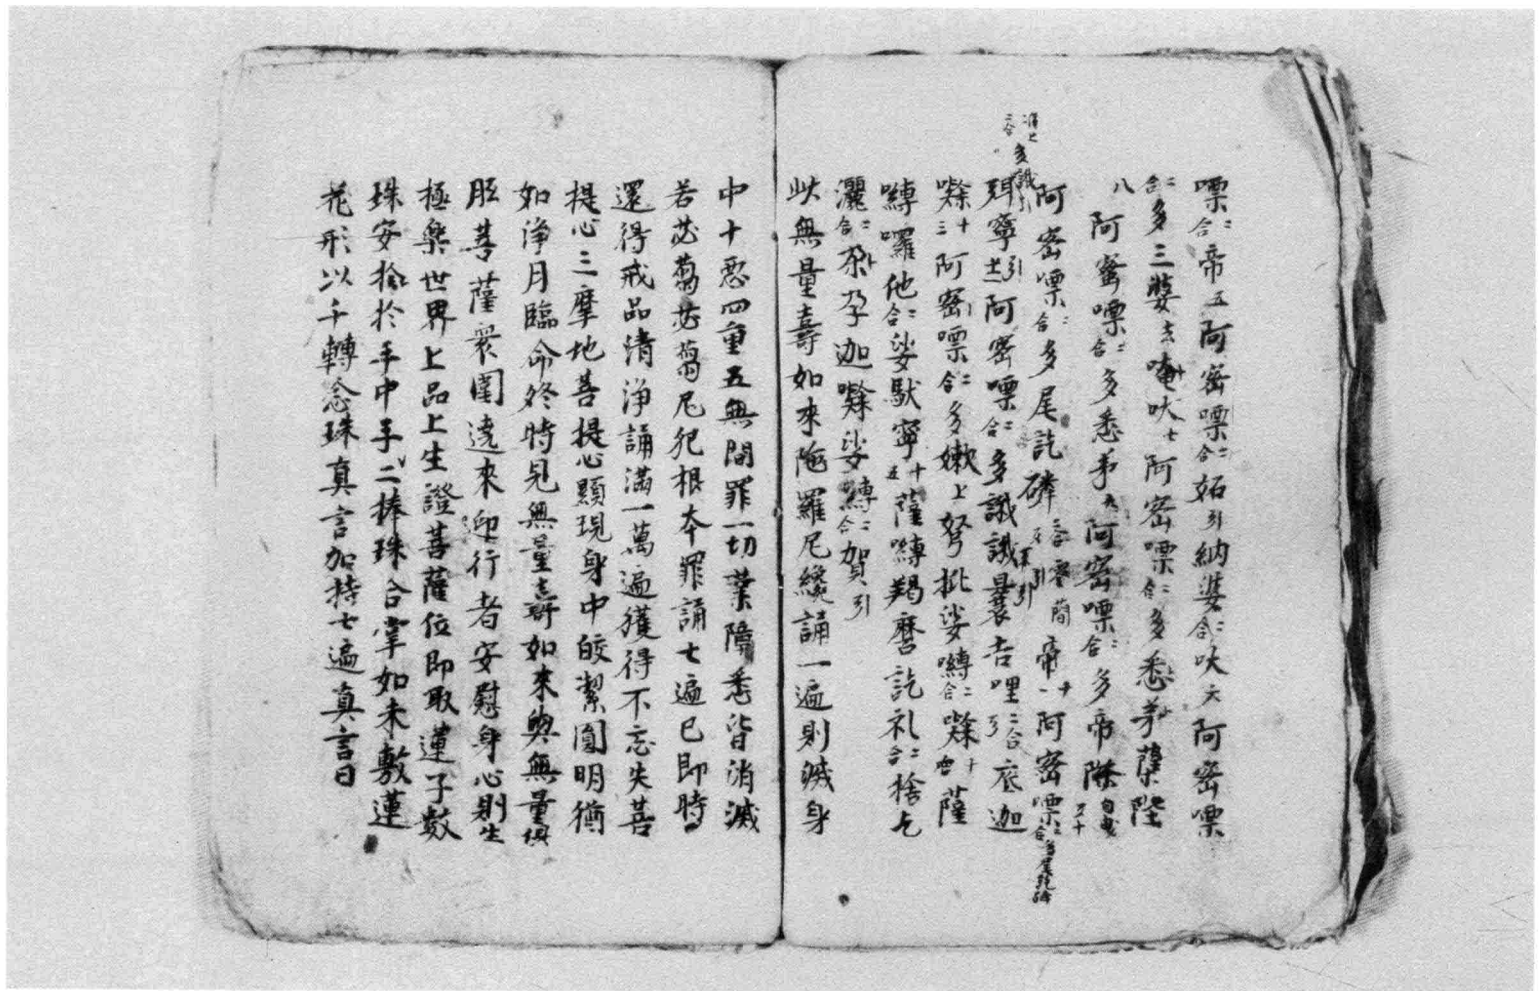 嘌二合帝五阿蜜嘌二合妬引納婆二合吠六阿蜜嘌
二合多三婆去唵吠七阿蜜嘌二合多悉弟蘖陛
八阿蜜嘌二合多悉弟九阿蜜嘌二合多帝際自曳反十
阿蜜嘌二合多尾訖磷帝十一阿蜜嘌二合多尾訖磷
多誐引
弭寧引十二阿蜜嘌二合多誐誐曩吉哩二合引底迦
㘑十三阿蜜嘌二合多嫰上弩批娑嚩二合㘑十四薩
嚩囉他二合娑馱寧十五薩嚩羯磨訖礼二合捨乞
灑二合孕迦㘑娑嚩二合賀引
此無量壽如來陁羅尼纔誦一遍則滅身
中十惡四重五無間罪一切業障悉皆消滅
若苾蒭苾蒭尼犯根本罪誦七遍已即時
還得戒品清淨誦滿一萬遍獲得不忘失菩
提心三摩地菩提心顯現身中皎潔圓明猶
如淨月臨命終時見無量壽如來與無量俱
胝菩薩衆圍遶來迎行者安慰身心則生
極樂世界上品上生證菩薩位即取蓮子數
珠安於手中手二捧珠合掌如未敷蓮
花形以千轉念珠真言加持七遍真言曰